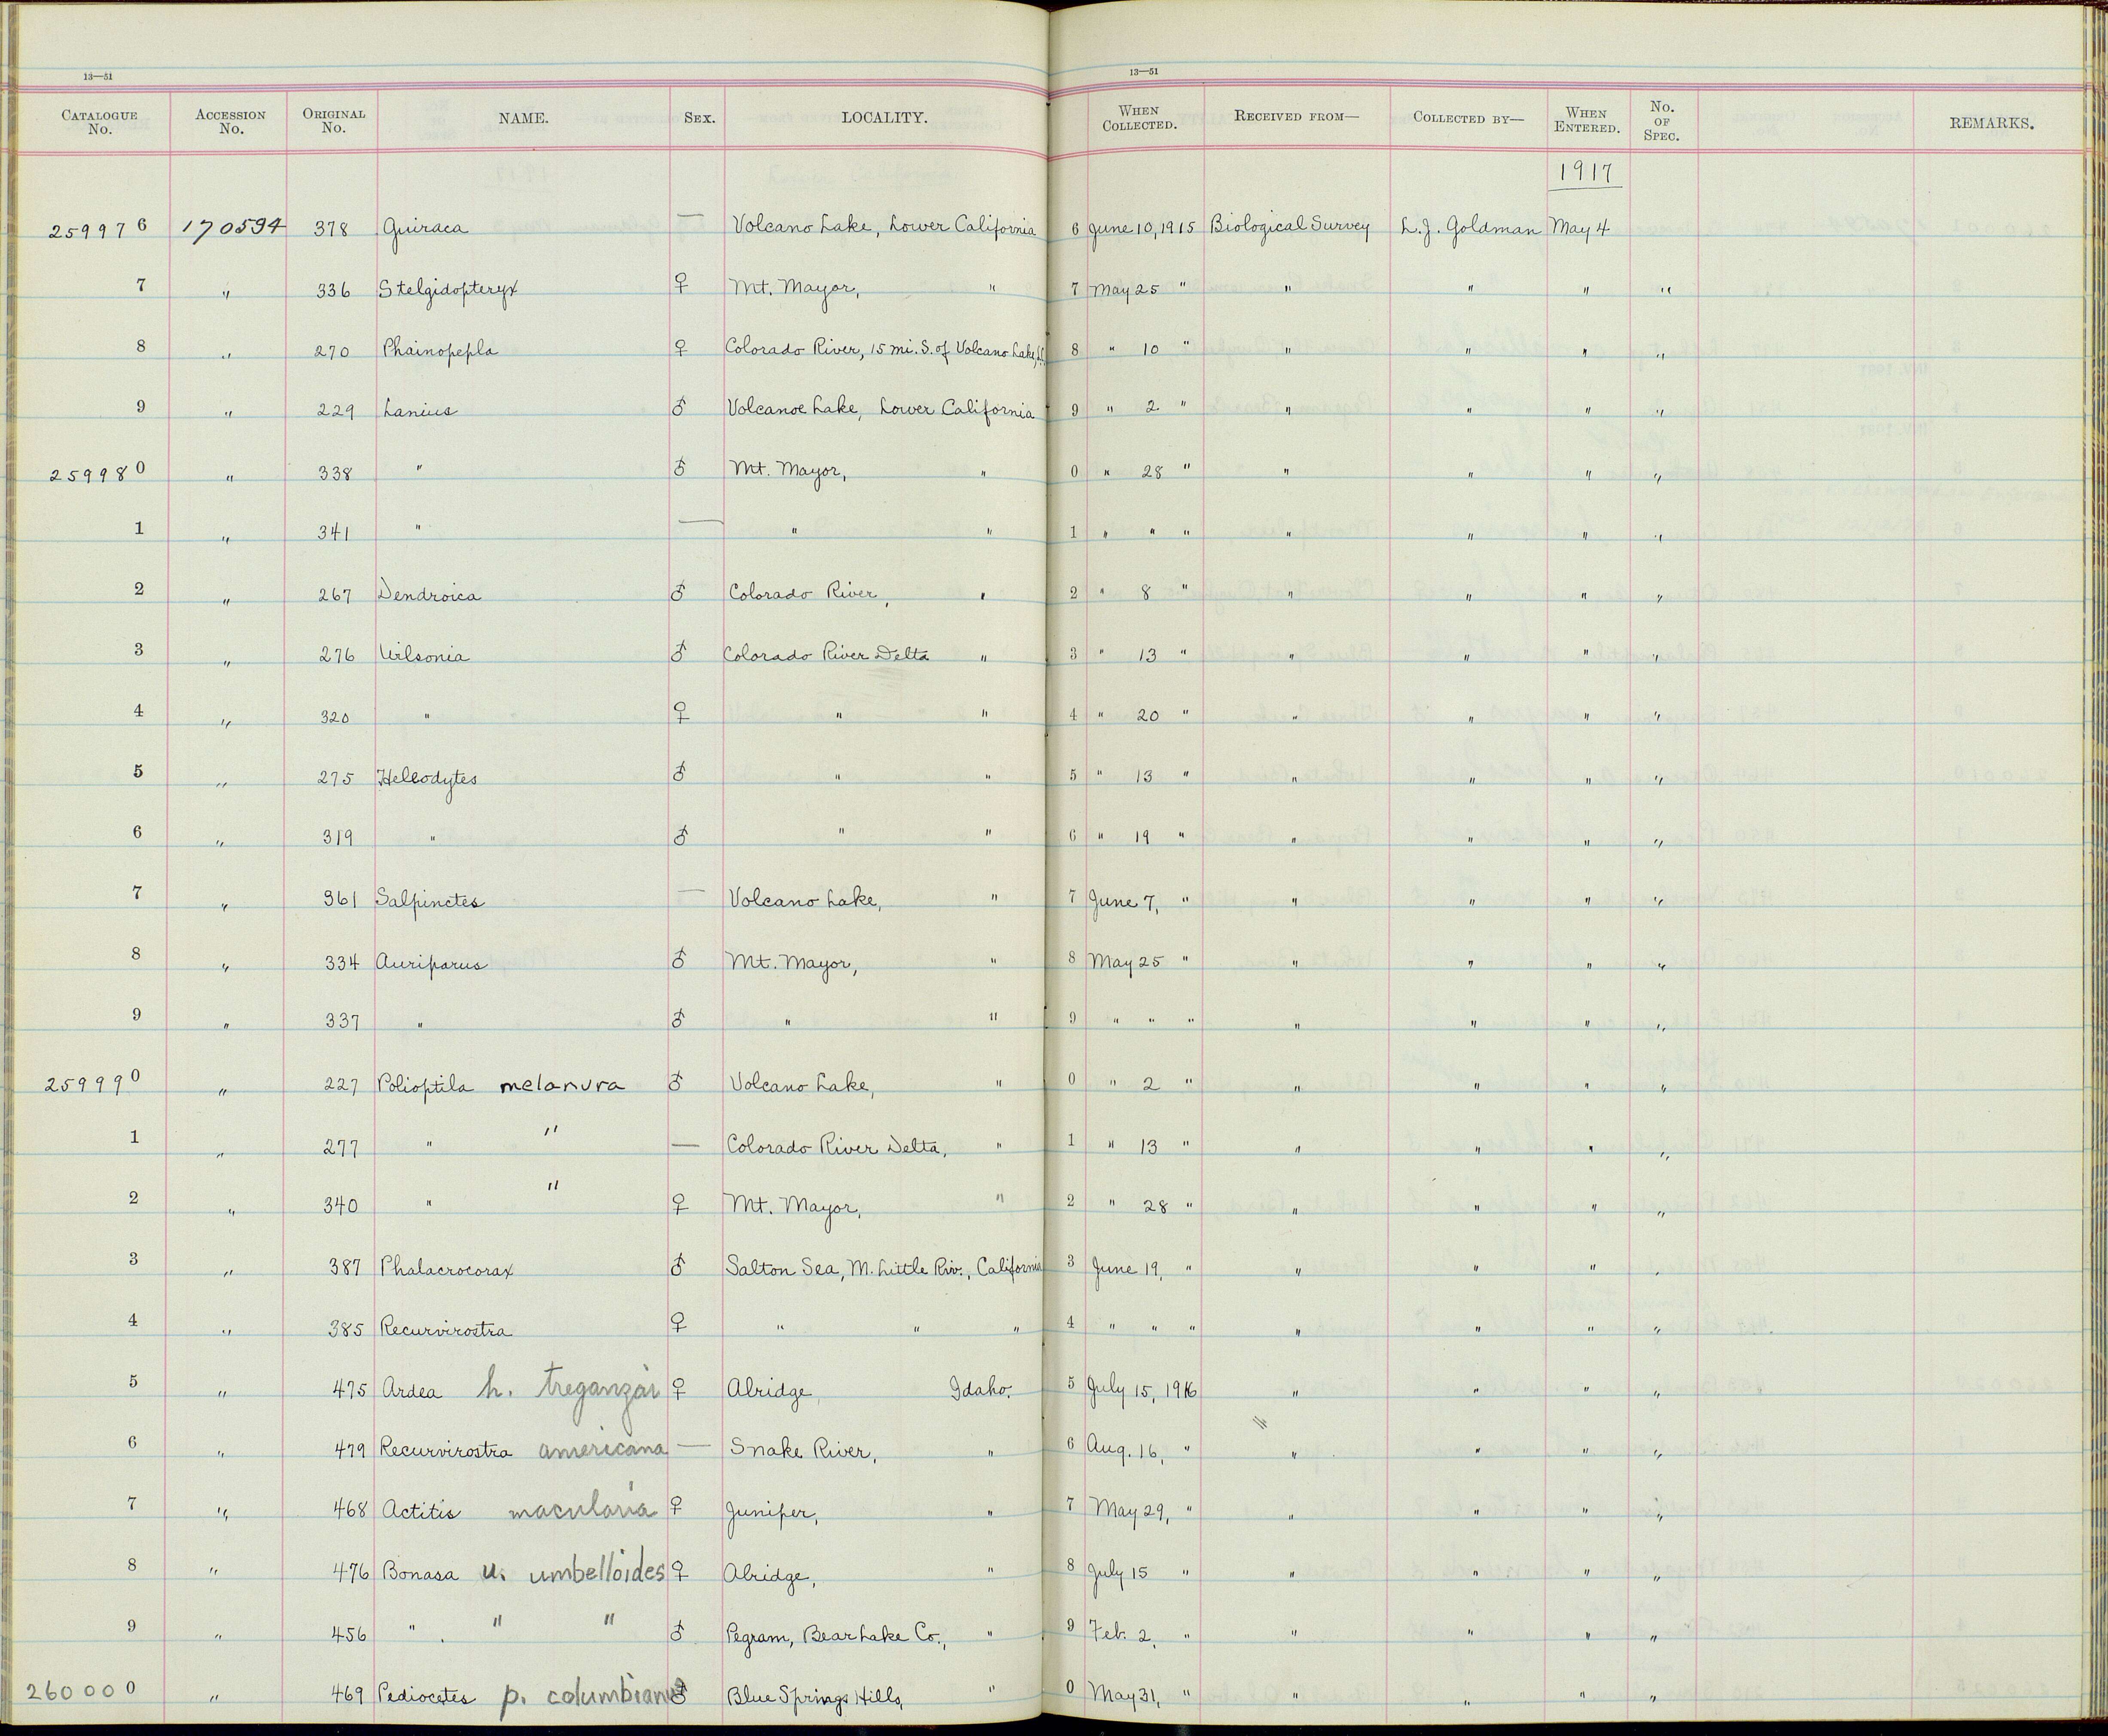 13—51 13—51
CATALOGUE No. ACCESSION No. ORIGINAL No. NAME. SEX. LOCALITY. WHEN COLLECTED. RECEIVED FROM— COLLECTED BY— WHEN ENTERED. No. OF SPEC. REMARKS.
1917
259976 170594 378 Guiraca — Volcano Lake, Lower California 6 June 10, 1915 Biological Survey L.J. Goldman May 4
7 " 336 Stelgidopteryx ♀ Mt. Mayor, " 7 May 25 " " " " "
8 " 270 Phainopepla ♀ Colorado River, 15 mi. S. of Volcano Lake, 8 " 10 " " " " "
9 " 229 Lanius ♂ Volcanoe Lake, Lower California 9 " 2 " " " " "
259980 " 338 " ♂ Mt. Mayor, " 0 " 28 " " " " "
1 " 341 " — " " 1 " " " " " " "
2 " 267 Dendroica ♂ Colorado River, " 2 " 8 " " " " "
3 " 276 Wilsonia ♂ Colorado River Delta " 3 " 13 " " " " "
4 " 320 " ♀ " " 4 " 20 " " " " "
5 " 275 Heleodytes ♂ " " 5 " 13 " " " " "
6 " 319 " ♂ " " 6 " 19 " " " " "
7 " 361 Salpinctes — Volcano Lake, " 7 June 7, " " " " "
8 " 334 Auriparus ♂ Mt. Mayor, " 8 May 25 " " " " "
9 " 337 " ♂ " " 9 " " " " " " "
259990 " 227 Polioptila melanura ♂ Volcano Lake, " 0 " 2 " " " " "
1 " 277 " " — Colorado River Delta, " 1 " 13 " " " " "
2 " 340 " " ♀ Mt. Mayor, " 2 " 28 " " " " "
3 " 387 Phalacrocorax ♂ Salton Sea, M. Little Riv., California 3 June 19, " " " " "
4 " 385 Recurvirostra ♀ " " " 4 " " " " " " "
5 " 475 Ardea h. treganzai ♀ Alridge, Idaho. 5 July 15, 1916 " " " "
6 " 479 Recurvirostra americana — Snake River, " 6 Aug. 16, " " " " "
7 " 468 Actitis macularia ♀ Juniper, " 7 May 29, " " " " "
8 " 476 Bonasa u. umbelloides ♀ Alridge, " 8 July 15 " " " " "
9 " 456 " " " ♂ Pegram, Bear Lake Co., " 9 Feb. 2, " " " " "
260000 " 469 Pediocetes p. columbianus ♂ Blue Springs Hills, " 0 May 31, " " " " "